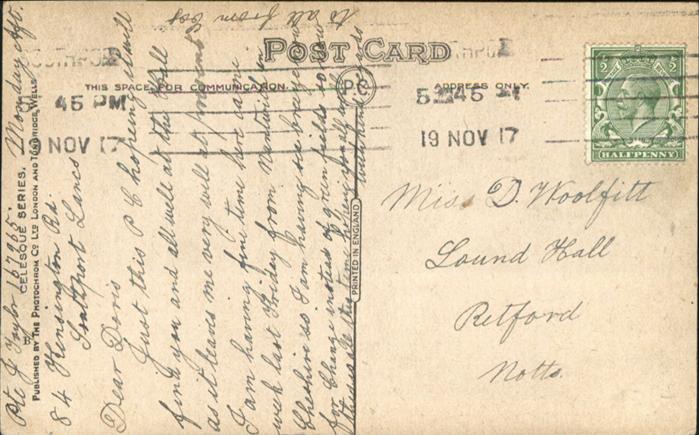 POST CARD
THIS SPACE FOR COMMUNICATION.
P.C.
ADDRESS ONLY.
SOUTHPORT
45 PM
19 NOV 17
5 45 PM
19 NOV 17
HALFPENNY
PRINTED IN ENGLAND
CELESQUE SERIES.
PUBLISHED BY THE PHOTOCHROM CO. LTD LONDON AND TUNBRIDGE WELLS.
Pte J Taylor 167965. Monday Aft.
84 Kensington Rd.
Southport Lancs
Dear Doris
Just this P C hoping it will
find you and all well at the Hall
as it leaves me very well at present
I am having fine time here came
week last Friday from Nantwich in
Cheshire so I am having sea breezes now
for change instead of green fields so no
more this time hoping you all well
with kind
to all from
Miss D. Woolfitt
Lound Hall
Retford
Notts.